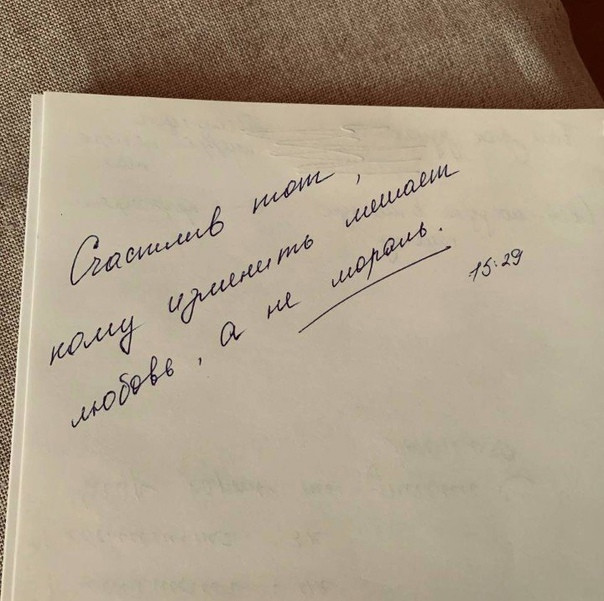 Счастлив тот,
кому изменить мешает
любовь, а не мораль.
15:29